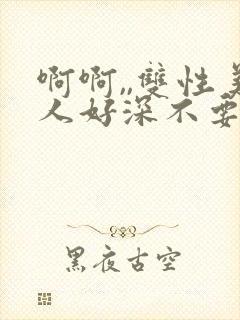 啊啊,,雙性美
人好深不要
黑夜古空